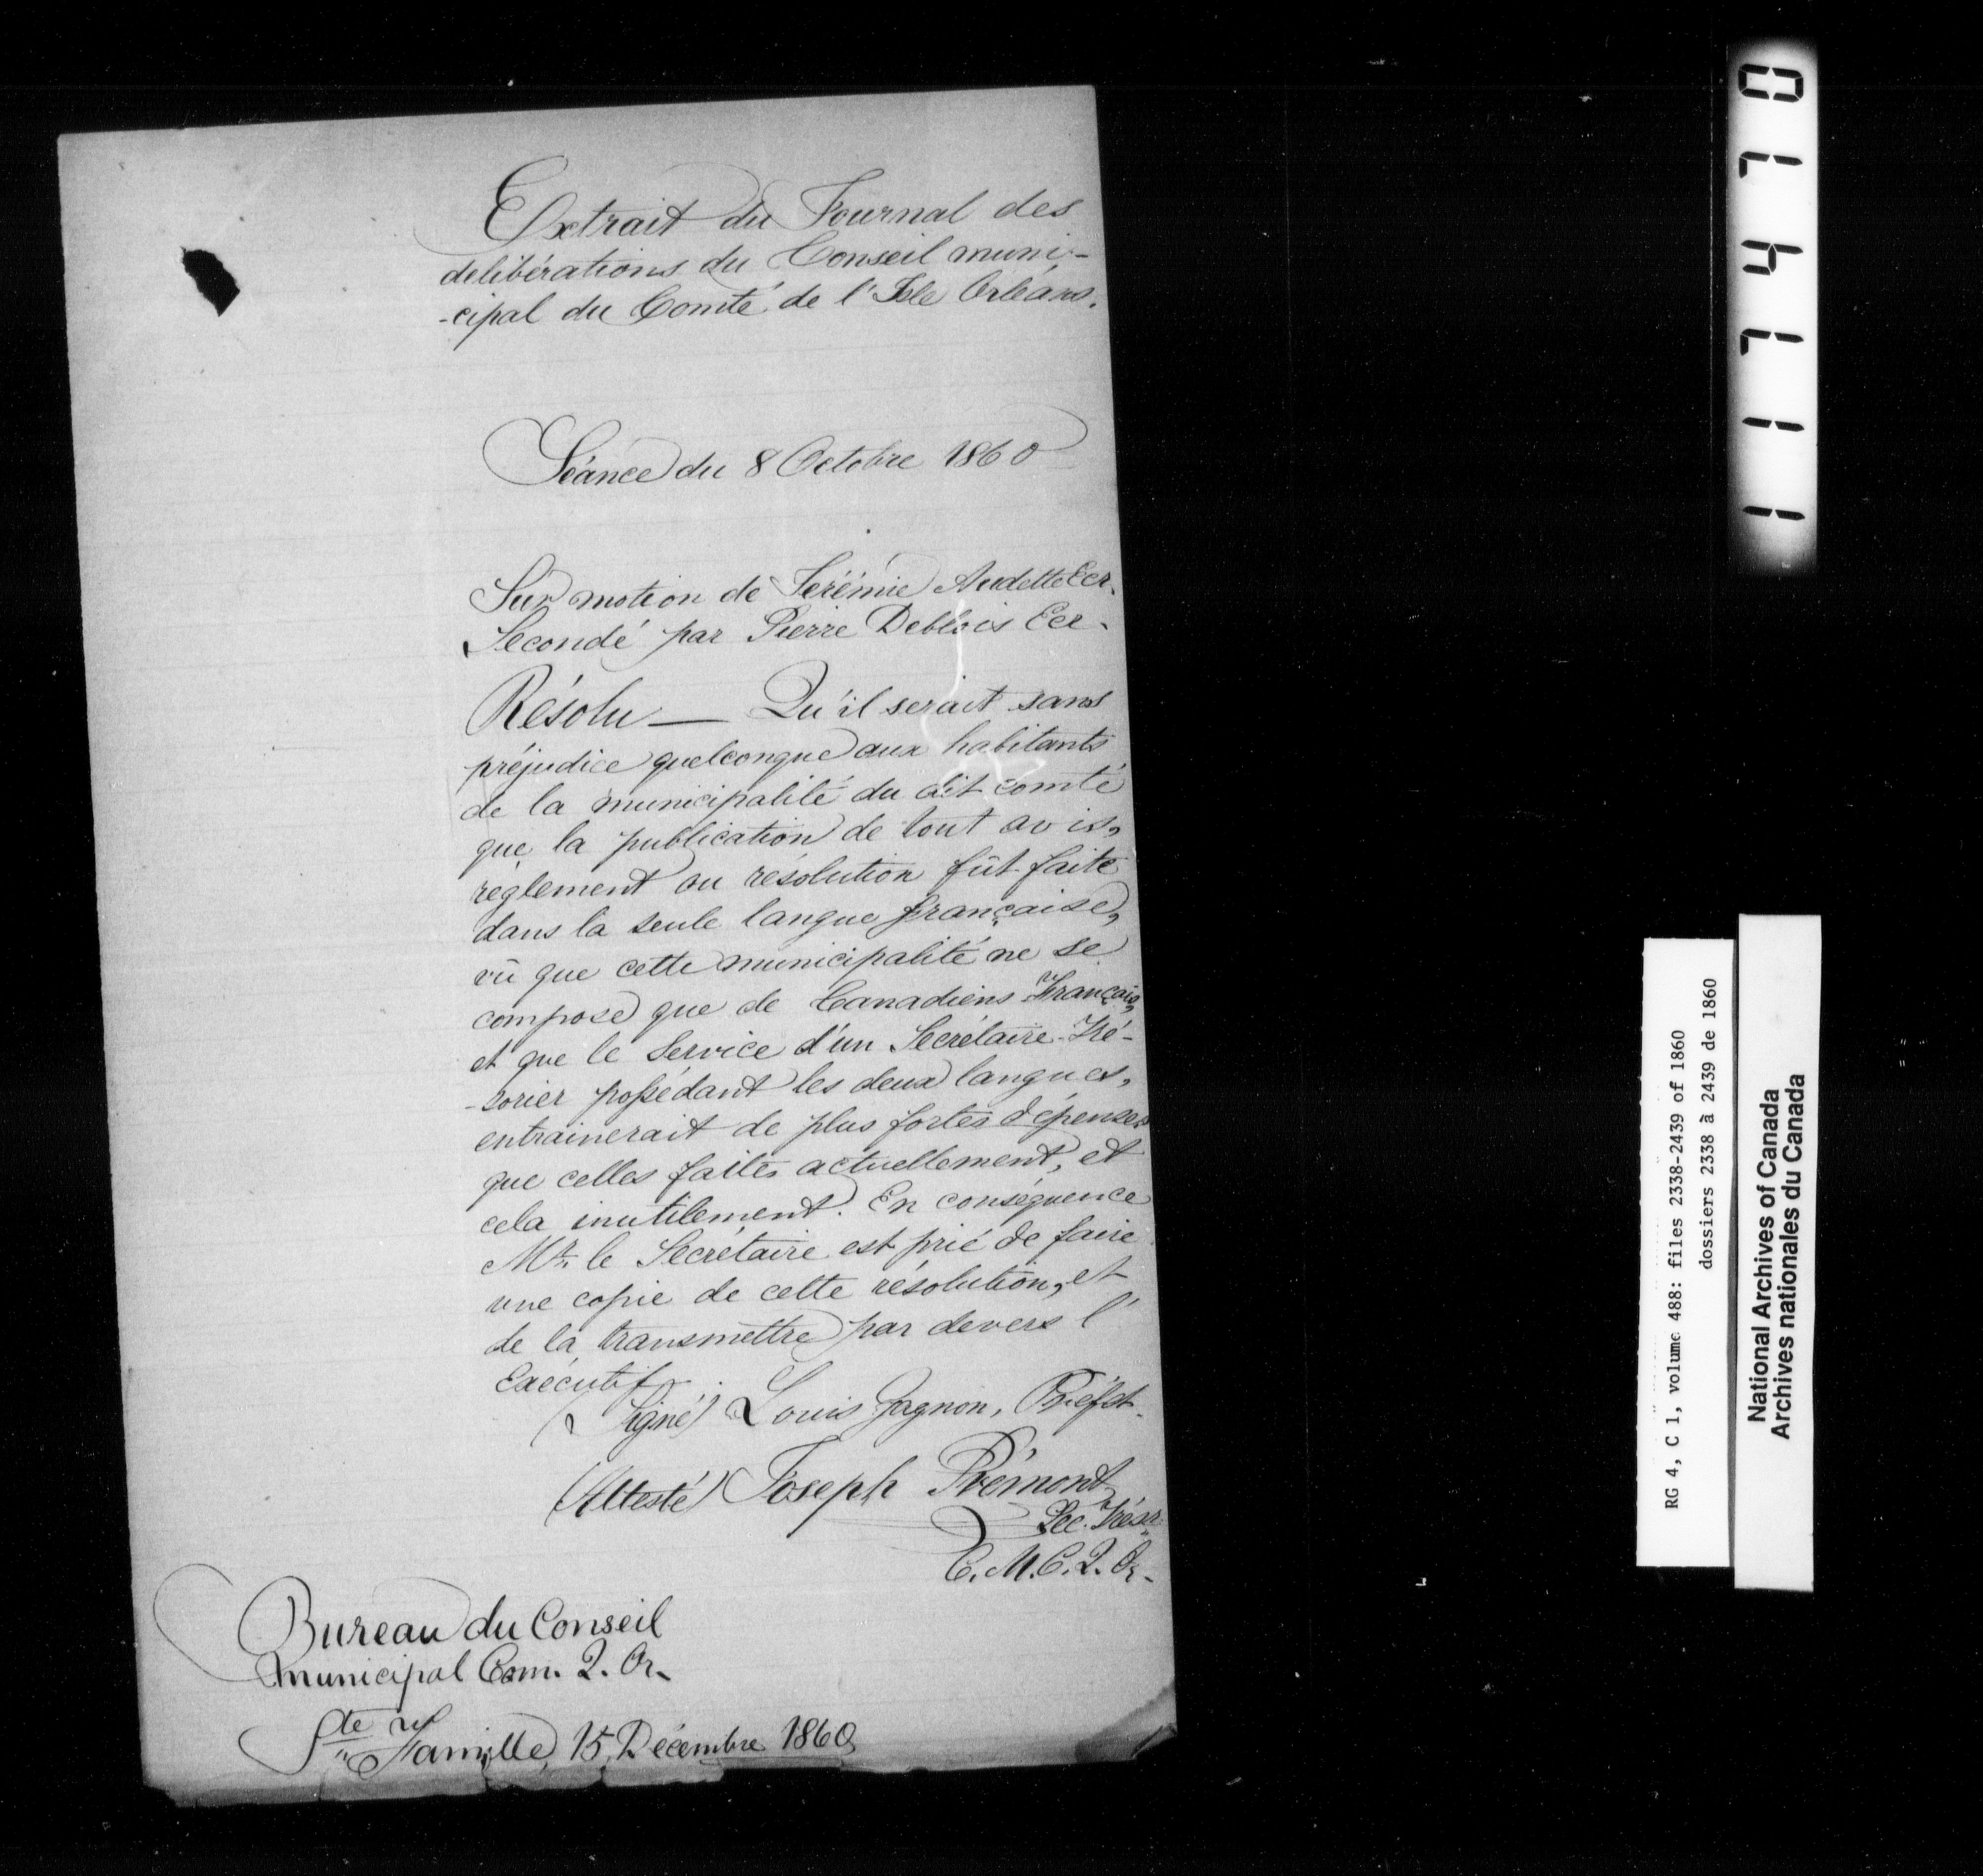 Extrait du Journal des
delibérations du Conseil muni-
-cipal du Comté de l'Isle Orléans.
Séance du 8 Octobre 1860
Sur motion de Jérémie Audette Ecr.
Secondé par Pierre Deblois Ecr.
Résolu — Qu'il serait sans
préjudice quelconque aux habitants
de la municipalité du dit comté
que la publication de tout avis,
règlement ou résolution fût faite
dans la seule langue française,
vû que cette municipalité ne se
compose que de Canadiens Français,
et que le Service d'un Secrétaire-Tré-
-sorier possédant les deux langues,
entrainerait de plus fortes dépenses
que celles faites actuellement, et
cela inutilement. En conséquence
Mr. le Secrétaire est prié de faire
une copie de cette résolution, et
de la transmettre par devers l'
Exécutif.
(Signé) Louis Gagnon, Préfet.
(Attesté) Joseph Prémont
Sec. Trésr.
C. M. C. I. Or.
Bureau du Conseil
municipal Com. I. Or.
Ste Famille, 15 Décembre 1860
117470
RG 4, C 1, volume 488: files 2338-2439 of 1860
dossiers 2338 à 2439 de 1860
National Archives of Canada
Archives nationales du Canada